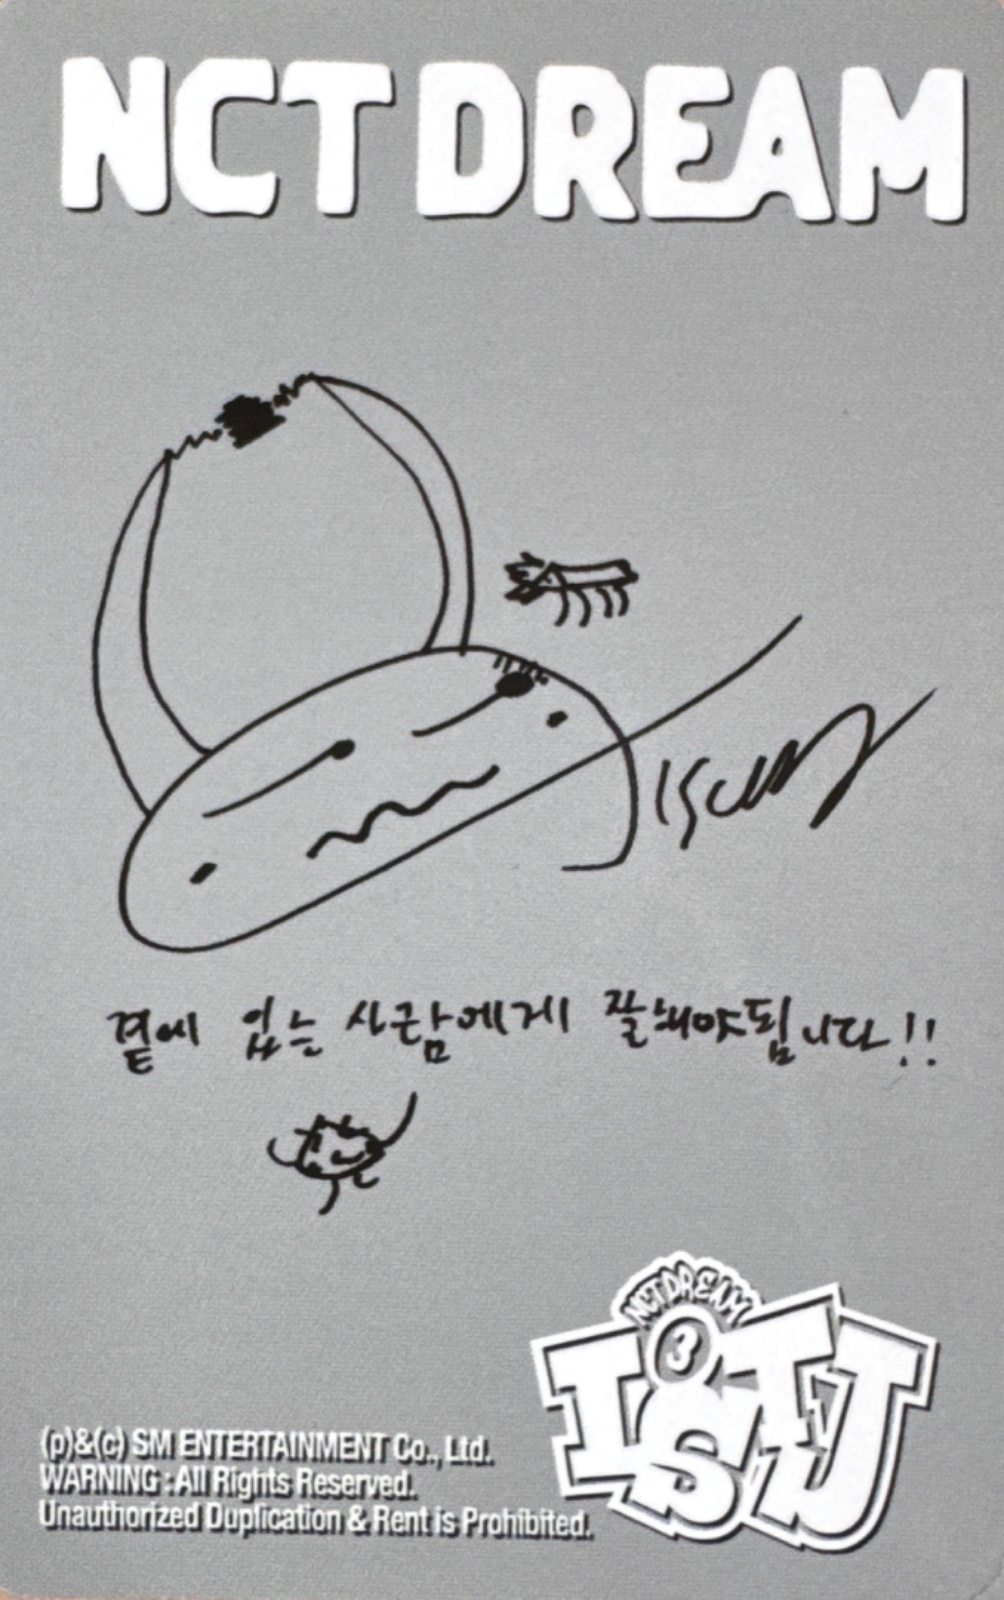 NCT DREAM
곁에 있는 사람에게 잘해야됩니다!!
NCT DREAM
3
ISTJ
(p)&(c) SM ENTERTAINMENT Co., Ltd.
WARNING : All Rights Reserved.
Unauthorized Duplication & Rent is Prohibited.